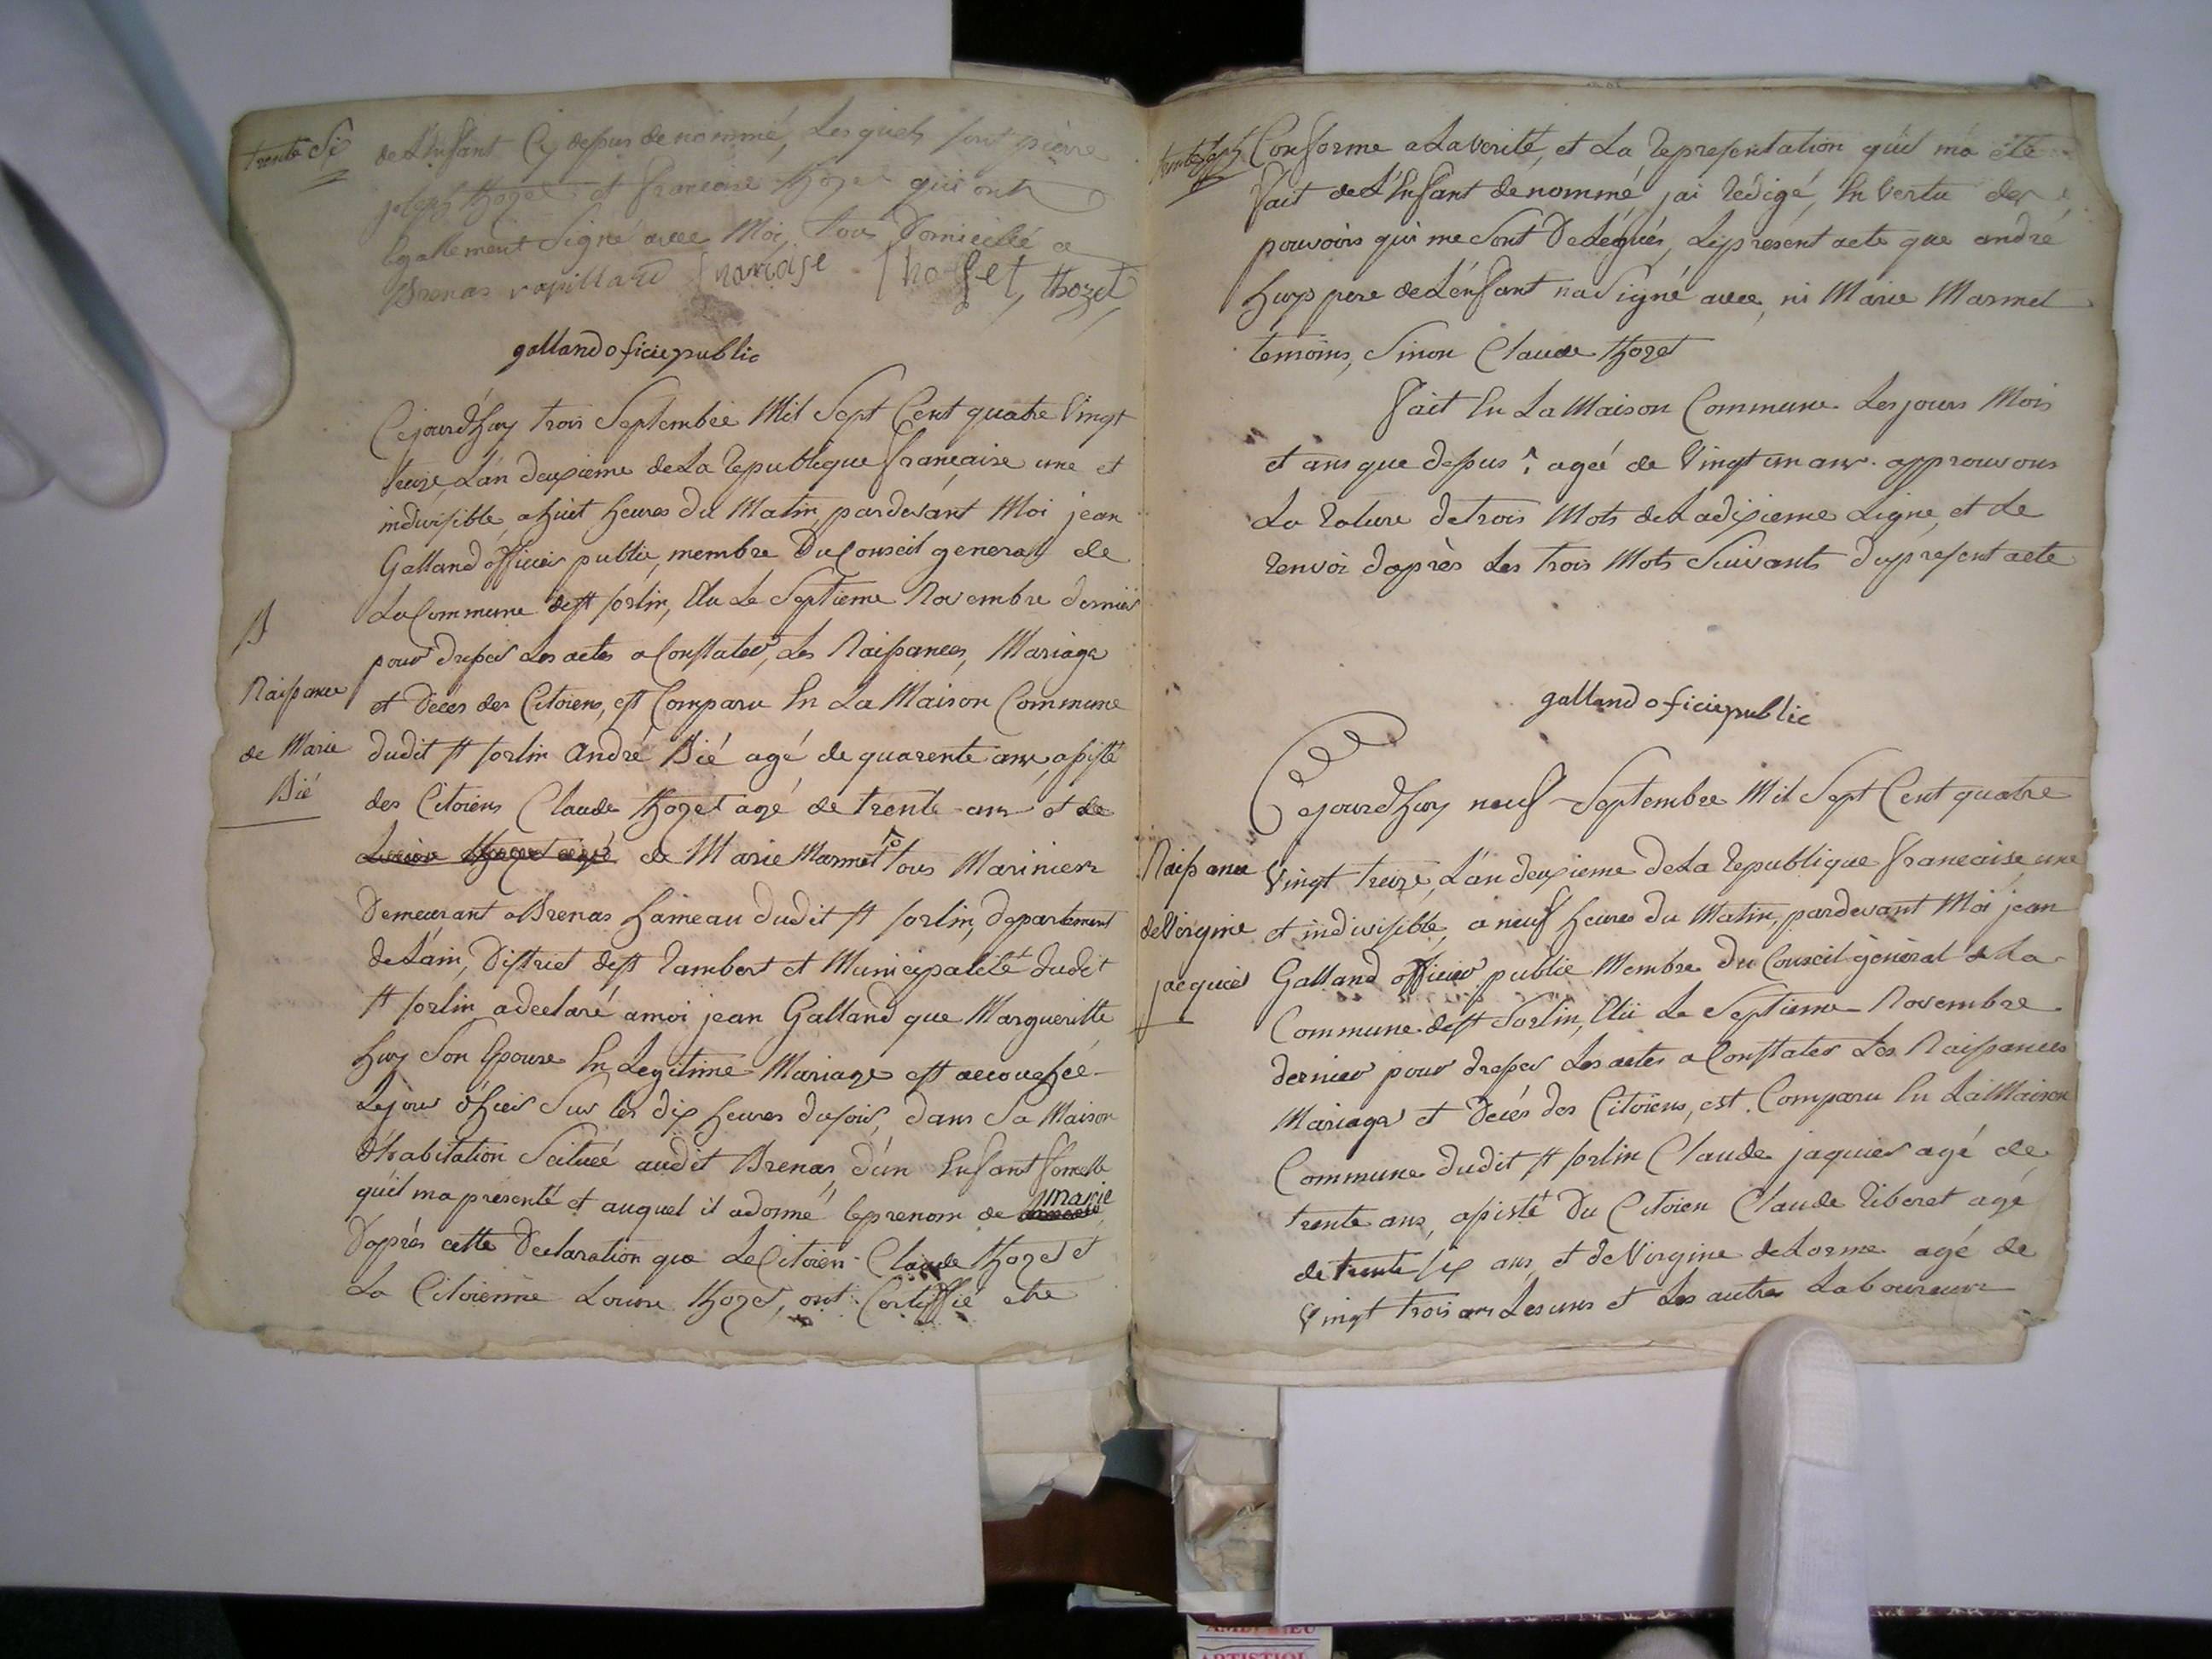 trente Si
de L'enfant Cy dessus denommé, Lesquels sont pierre
joseph thozet et francoise thozet qui ont
Egallement Signé avec Moi, tous Domicilié a
Brenas rapillard francoise thoset, thozet
galland oficie public
Cejourd'huy trois Septembre Mil Sept Cent quatre Vingt
treize, L'an deuxieme de La republique francaise une et
indivisible, a huit heures du Matin, pardevant Moi jean
Galland officier public, membre du Conseil general de
La Commune de st sorlin, Elu Le Septieme Novembre dernier
pour dresser Les actes a Constater, Les Naissances, Mariage
et Décés des Citoiens, est Comparu En La Maison Commune
B
Naissance
de Marie
Bié
dudit st sorlin André Bié agé de quarente ans, assisté
des Citoiens Claude thozet agé de trente ans et de
thozet agé de Marie Marmet tous Mariniers
Demeurant a Brenas hameau dudit st sorlin, departement
de L'ain, District de st rambert et Municipalité dudit
st sorlin a declaré a moi jean Galland que Margueritte
huy Son Epouse En Legitime Mariage est accouchée
Le jour d'hier Sur les dix heures du soir, dans Sa Maison
d'habitation Scituée audit Brenas, d'un Enfant femelle
qu'il ma presenté et auquel il a donné le prenom de marie
D'après cette Declaration que Le Citoien Claude thozet et
La Citoienne Louise thozet, ont Certiffié etre
trente sept
Conforme a La verité, et La representation qu'il m'a été
fait de L'Enfant denommé jai rédigé, En Vertu des
pouvoirs qui me Sont Delegués, Le present acte que andré
huys pere de L'enfant na Signé avec, ni Marie Marmet
temoins, Sinon Claude thozet
fait En La Maison Commune Les jours Mois
et ans que dessus agée de Vingt un ans. approuvons
La rature de trois Mots de La dixieme Ligne, et Le
renvoi d'après Les trois Mots Suivants du present acte
galland oficie public
Cejourd'huy neuf Septembre Mil Sept Cent quatre
Naissance
de Virginie
jacquier
Vingt treize, L'an deuxieme de La republique francaise, une
et indivisible, a neuf heures du Matin, pardevant Moi jean
Galland officier public Membre du Conseil général de La
Commune de st Sorlin, Elu Le Septieme Novembre
dernier pour dresser Les actes a Constater Les Naissances
Mariages et Decés des Citoiens, est Comparu En La Maison
Commune dudit st sorlin Claude jaquier agé de
trente ans, assisté Du Citoien Claude riboret agé
de trente six ans, et de Virgine de Lorme agé de
Vingt trois ans Les uns et Les autres Laboureurs